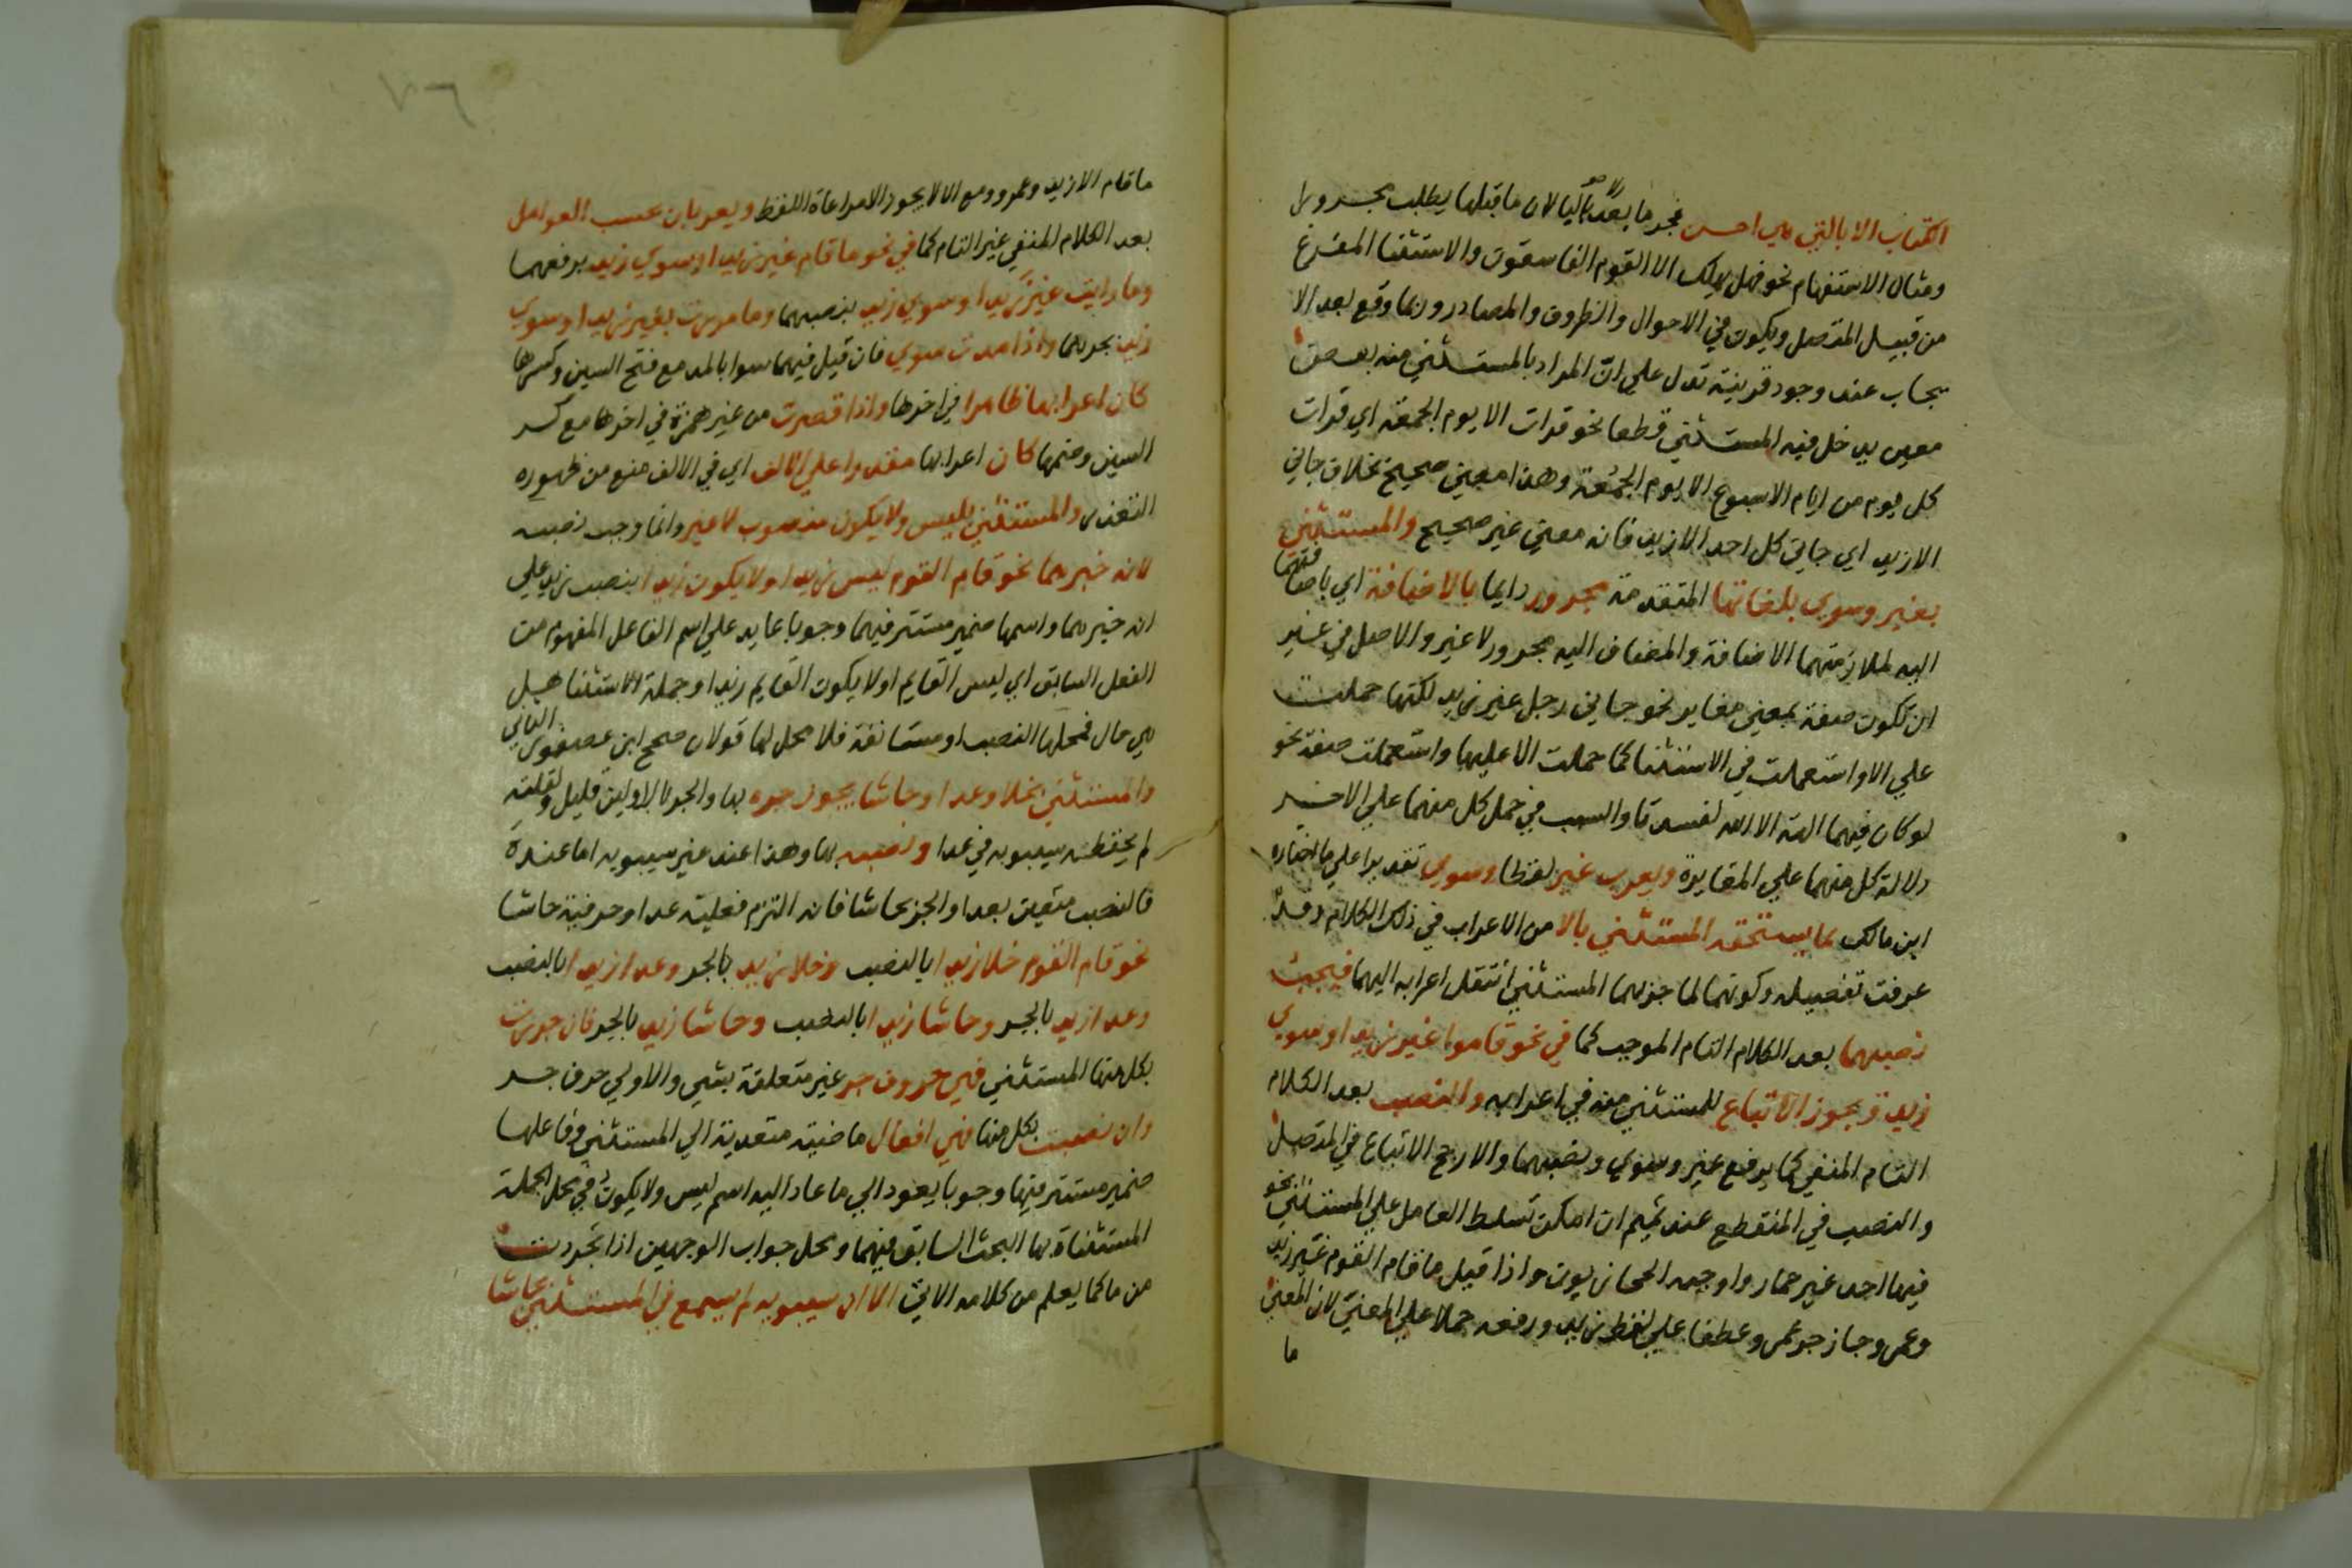 الكتاب الا بالتي هي احسن فجر ما بعد الا بالبا لان ما قبلها يطلب مجرورا
ومثال الاستفهام نحو فهل يهلك الا القوم الفاسقون والاستثنا المفرغ
من قبيل المتصل ويكون في الاحوال والظروف والمصادر وربما وقع بعد الا
بجاب عند وجود قرينة تدل علي ان المراد بالمستثني منه بعض
معين يدخل فيه المستثني قطعا نحو قرات الا يوم الجمعة اي قرات
كل يوم من ايام الاسبوع الا يوم الجمعة وهذا معني صحيح بخلاف جاني
الا زيد اي جاني كل احد الا زيد فانه معني غير صحيح والمستثني
بغير وسوي بلغاتها المتقدمة مجرور دايما بالاضافة اي باضافتهما
اليه لملازمتهما الاضافة والمضاف اليه مجرور لا غير والاصل في غير
ان تكون صفة بمعني مغاير نحو جاني رجل غير زيد لكنها حملت
علي الا واستعملت في الاستثنا كما حملت الا عليها واستعملت صفة نحو
لو كان فيهما الهة الا الله لفسدتا والسبب في حمل كل منهما علي الاخر
دلالة كل منهما علي المغايرة ويعرب غير لفظا وسوي تقديرا علي ما اختاره
ابن مالك بما يستحقه المستثني بالا من الاعراب في ذلك الكلام وقد
عرفت تفصيله وكونهما لما جرهما المستثني انتقل اعرابه اليهما فيجب
نصبهما بعد الكلام التام الموجب كما في نحو قاموا غير زيد او سوي
زيد ويجوز الاتباع للمستثني منه في اعرابه والنصب بعد الكلام
التام المنفي كما يرفع غير وسوي ونصبهما والارجح الاتباع في المتصل
والنصب في المنقطع عند تميم ان امكن تسلط العامل علي المستثني نحو
فيها احد غير حمار واوجبه الحجازيون واذا قيل ما قام القوم غير زيد
وعمرو جاز جر عمرو عطفا علي لفظ زيد ورفعه حملا علي المعني لان المعني
ما
ما قام الا زيد وعمرو ومع الا لا يجوز الا مراعاة اللفظ ويعربان بحسب العوامل
بعد الكلام المنفي غير التام كما في نحو ما قام غير زيد او سوي زيد برفعهما
وما رايت غير زيد او سوي زيد بنصبهما وما مررت بغير زيد او سوي
زيد بجرهما واذا مدت سوي فان قيل فيهما سوا بالمد مع فتح السين وكسرها
كان اعرابها ظاهرا في اخرها واذا قصرت من غير همزة في اخرها مع كسر
السين وضمها كان اعرابها مقدرا علي الالف اي في الالف منع من ظهوره
التعذر والمستثني بليس ولا يكون منصوب لا غير وانما وجب نصبه
لانه خبرهما نحو قام القوم ليس زيدا ولا يكون زيدا بنصب زيد علي
انه خبرهما واسمها ضمير مستتر فيهما وجوبا عايد علي اسم الفاعل المفهوم من
الفعل السابق اي ليس القايم او لا يكون القايم زيدا وجملة الاستثنا هل
هي حال فمحلها النصب او مستانفة فلا محل لها قولان صحح ابن عصفور الثاني
والمستثني بخلا وعدا وحاشا يجوز جره بها والجر بالاولين قليل ولقلته
لم يحفظه سيبويه في عدا ونصبه بها وهذا عند غير سيبويه اما عنده
فالنصب متعين بعدا والجر بحاشا فانه التزم فعلية عدا وحرفية حاشا
نحو قام القوم خلا زيدا بالنصب وخلا زيد بالجر وعدا زيدا بالنصب
وعدا زيد بالجر وحاشا زيدا بالنصب وحاشا زيد بالجر فان جررت
بكل منها المستثني فهي حروف جر غير متعلقة بشي والاولي حرف جر
وان نصبت بكل منها فهي افعال ماضية متعدية الي المستثني وفاعلها
ضمير مستتر فيها وجوبا يعود الي ما عاد اليه اسم ليس ولا يكون وفي محل الجملة
المستثناة بها البحث السابق فيهما ومحل جواب الوجهين اذا تجردت
من ما كما يعلم من كلامه الاتي الا ان سيبويه لم يسمع في المستثني بحاشا